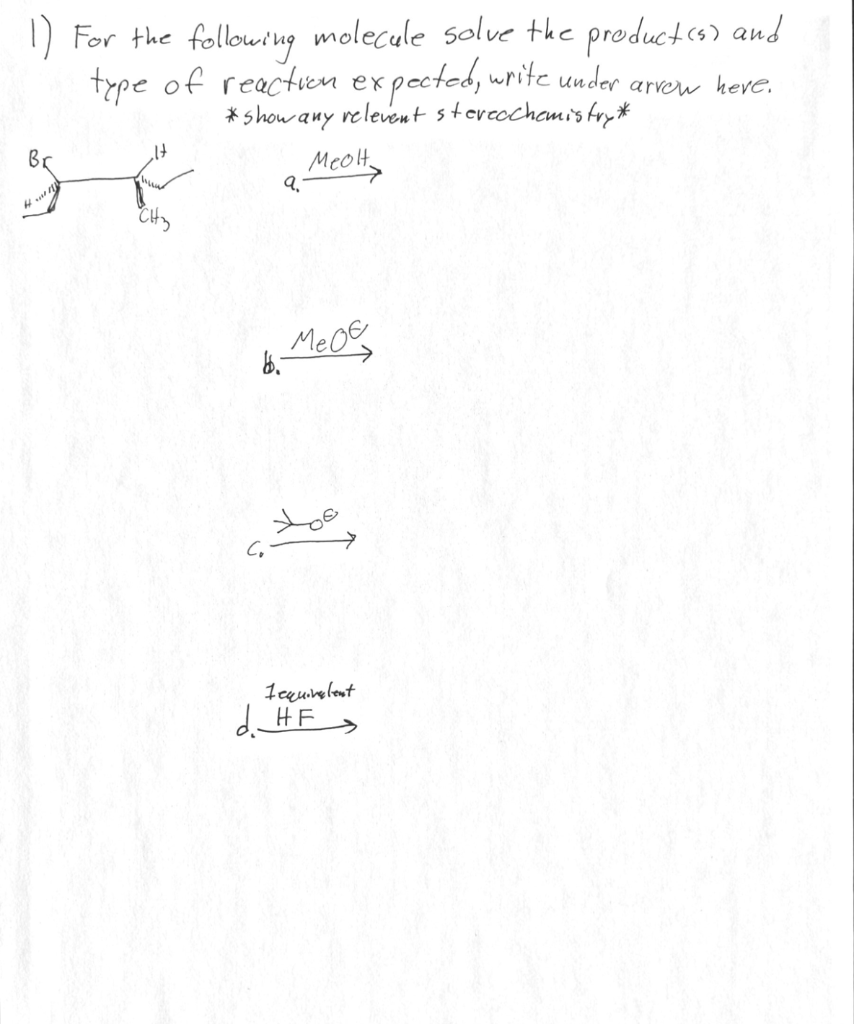 1) For the following molecule solve the product(s) and
type of reaction expected, write under arrow here.
*show any relevent stereochemistry*
Br
H
H
CH3
a. MeOH
b. MeO⊖
c. O⊖
1 equivelent
d. HF